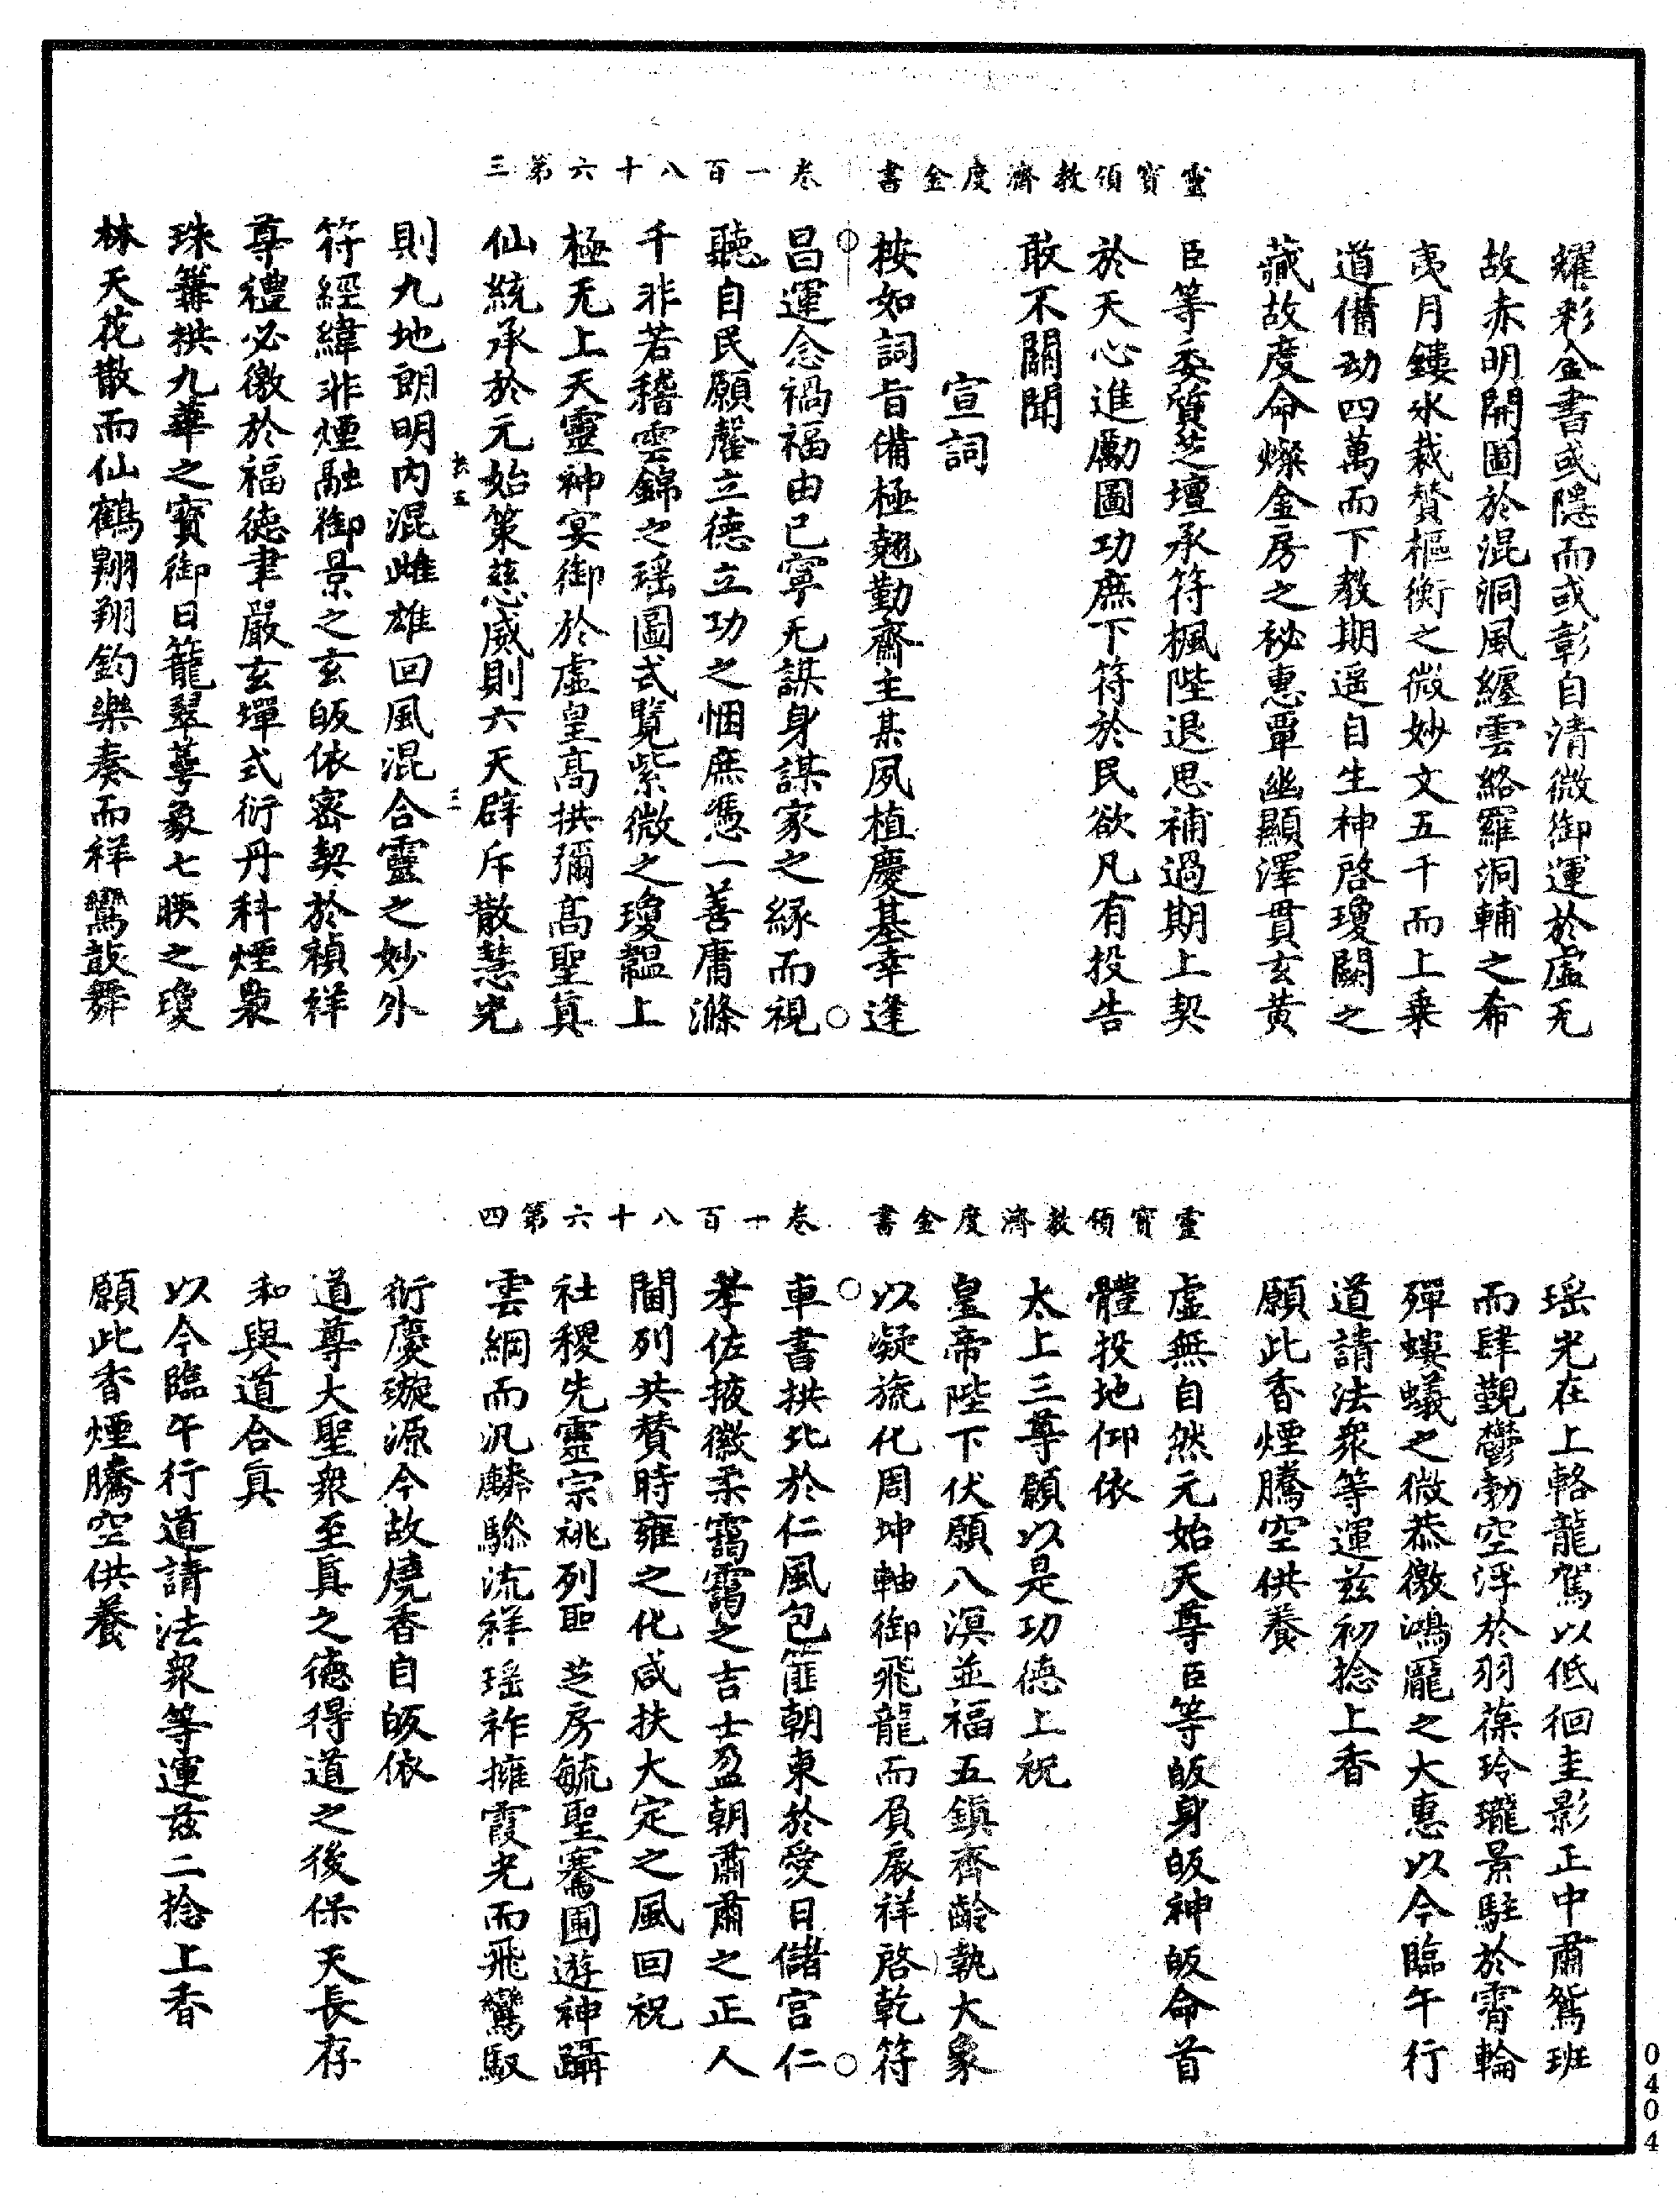 靈寶領教濟度金書　卷一百八十六第三
耀彩金書或隱而或彰自清微御運於虛无
故赤明開圖於混洞風纏雲絡羅洞輔之希
夷月鏤氷裁贊樞衡之微妙文五千而上乗
道備劫四萬而下教期遥自生神啓瓊闕之
藏故度命燦金房之秘惠覃幽顯澤貫玄黄
臣等委質芝壇承符楓陛退思補過期上契
於天心進勵圖功庶下符於民欲凡有投告
敢不關聞
宣詞
按如詞旨備極翹勤齋主某夙植慶基幸逢
昌運念禍福由已寧无謀身謀家之緣而視
聽自民願罄立德立功之悃庶憑一善庸滌
千非若稽雲錦之瑶圖式覽紫微之瓊韞上
極无上天靈神宴御於虛皇髙拱彌髙聖眞
仙統承於元始策慈威則六天辟斥散慧光
則九地朗明内混雌雄回風混合靈之妙外
符經緯非煙融御景之玄皈依宻契於禎祥
尊禮必徼於福德聿嚴玄墠式衍丹科煙裊
珠篝拱九華之寳御日籠翠蕚象七暎之瓊
林天花散而仙鶴翺翔鈞樂奏而祥鸞鼓舞
靈寶領教濟度金書　卷一百八十六第四
瑶光在上輅龍駕以低徊圭影正中肅鴛班
而肆覲鬱勃空浮於羽葆玲瓏景駐於霄輪
殫螻蟻之微恭徼鴻龎之大惠以今臨午行
道請法衆等運兹初捻上香
願此香煙騰空供養
虛無自然元始天尊臣等皈身皈神皈命首
體投地仰依
太上三尊願以是功德上祝
皇帝陛下伏願八溟並福五鎭齊齡執大象
以凝旒化周坤軸御飛龍而負扆祥啓乾符
車書拱北於仁風包篚朝東於愛日儲宫仁
孝佐掖徽柔靄靄之吉士盈朝肅肅之正人
闔列共賛時雍之化咸扶大定之風回祝
社稷先靈宗祧列聖芝房毓聖騫圃遊神躡
雲綱而汎麟驂流祥瑶祚擁霞光而飛鸞馭
衍慶璇源今故燒香自皈依
道尊大聖衆至眞之德得道之後保天長存
和與道合眞
以今臨午行道請法衆等運兹二捻上香
願此香煙騰空供養
0404